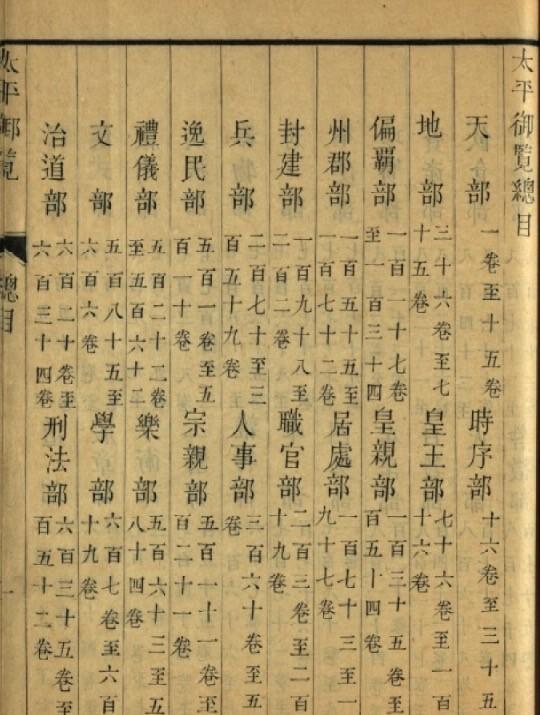 太平御覽總目
天部 一卷至十五卷 時序部 十六卷至三十五
地部 三十六卷至七十五卷 皇王部 七十六卷至一百十六卷
偏霸部 一百一十七卷至一百三十四 皇親部 一百三十五卷至百五十四卷
州郡部 一百五十五至一百七十二卷 居處部 一百七十三至一九十七卷
封建部 一百九十八至二百二卷 職官部 二百三卷至二百十九卷
兵部 二百七十至三百五十九卷 人事部 三百六十卷至五卷
逸民部 五百一卷至五百一十卷 宗親部 五百一十一卷至百二十一卷
禮儀部 五百二十二卷至五百六十二 樂部 五百六十三至五八十四卷
文部 五百八十五至六百六卷 學部 六百七卷至六百十九卷
治道部 六百二十卷至六百三十四卷 刑法部 六百三十五卷至百五十二卷
太平御覽 總目 一